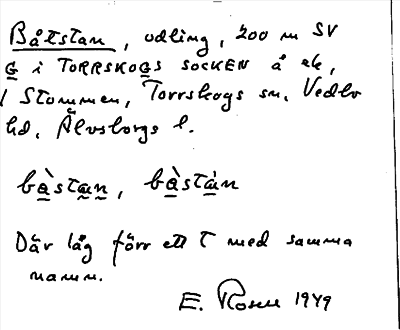 Båtstan, odling, 200 m SV
G i TORRSKOGS SOCKEN å ek,
/ Stommen, Torrskogs sn. Vedbo
hd, Älvsborgs l.
bàstan, bàstàn
Där låg förr ett T med samma
namn.
E. Rosen 1949